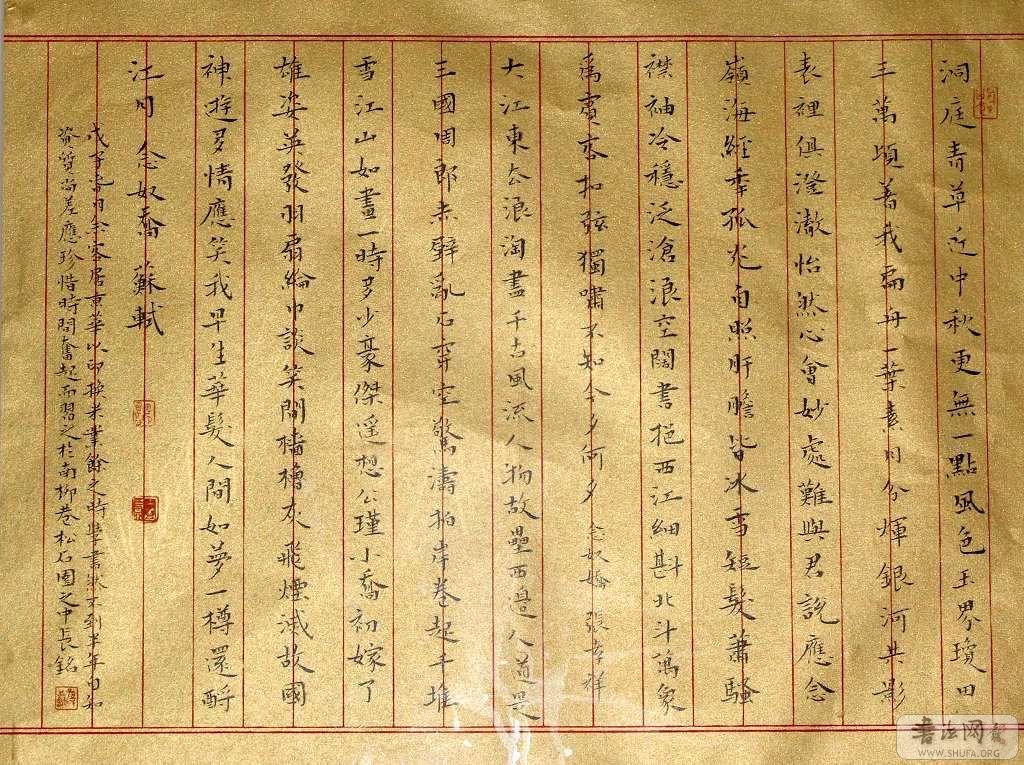 洞庭青草近中秋更無一點風色玉界瓊田
三萬頃著我扁舟一葉素月分輝銀河共影
表裡俱澄澈怡然心會妙處難與君說應念
嶺海經年孤光自照肝膽皆冰雪短髮蕭騷
襟袖冷穩泛滄浪空闊書挹西江細斟北斗萬象
為賓客扣弦獨嘯不知今夕何夕 念奴嬌 張孝祥
大江東去浪淘盡千古風流人物故壘西邊人道是
三國周郎赤壁亂石穿空驚濤拍岸卷起千堆
雪江山如畫一時多少豪傑遙想公瑾小喬初嫁了
雄姿英發羽扇綸巾談笑間檣櫓灰飛煙滅故國
神遊多情應笑我早生華髮人間如夢一樽還酹
江月 念奴喬 蘇軾
戊子 月余客居東華以印換米業餘之時學書然不到半年自知
資質尚差應珍惜時間奮起而習之於南柳巷松石園之中長銘
书法网
WWW.SHUFA.ORG